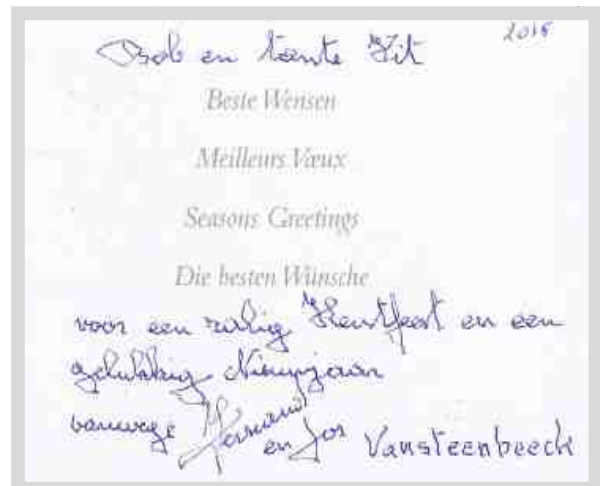 Bob en tante Sit 2015
Beste Wensen
Meilleurs Vœux
Seasons Greetings
Die besten Wünsche
voor een zalig Kerstfeest en een
gelukkig Nieuwjaar
vanwege Hermand
en Jos Vansteenbeeck